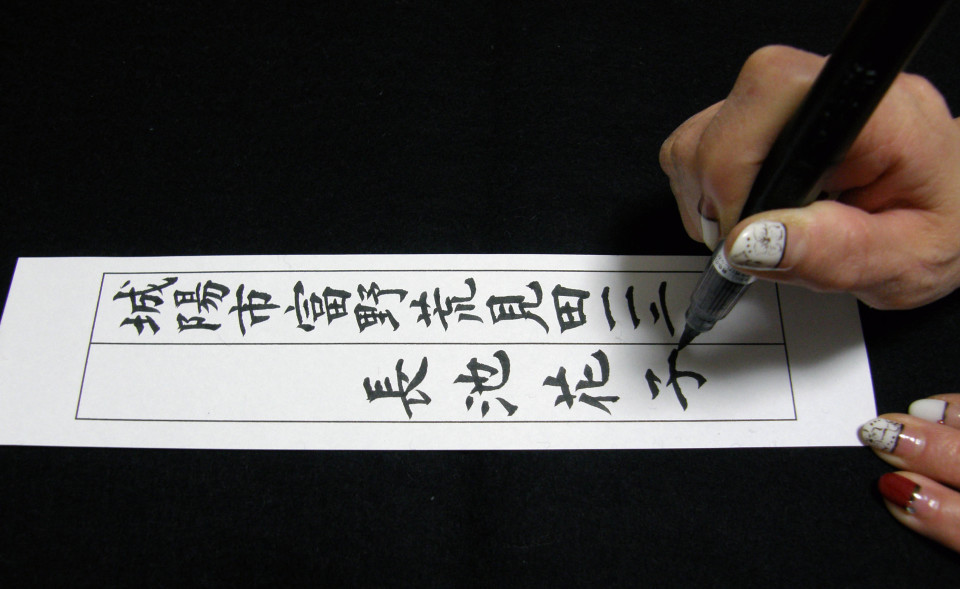 城陽市富野荒見田一一二
長池花子